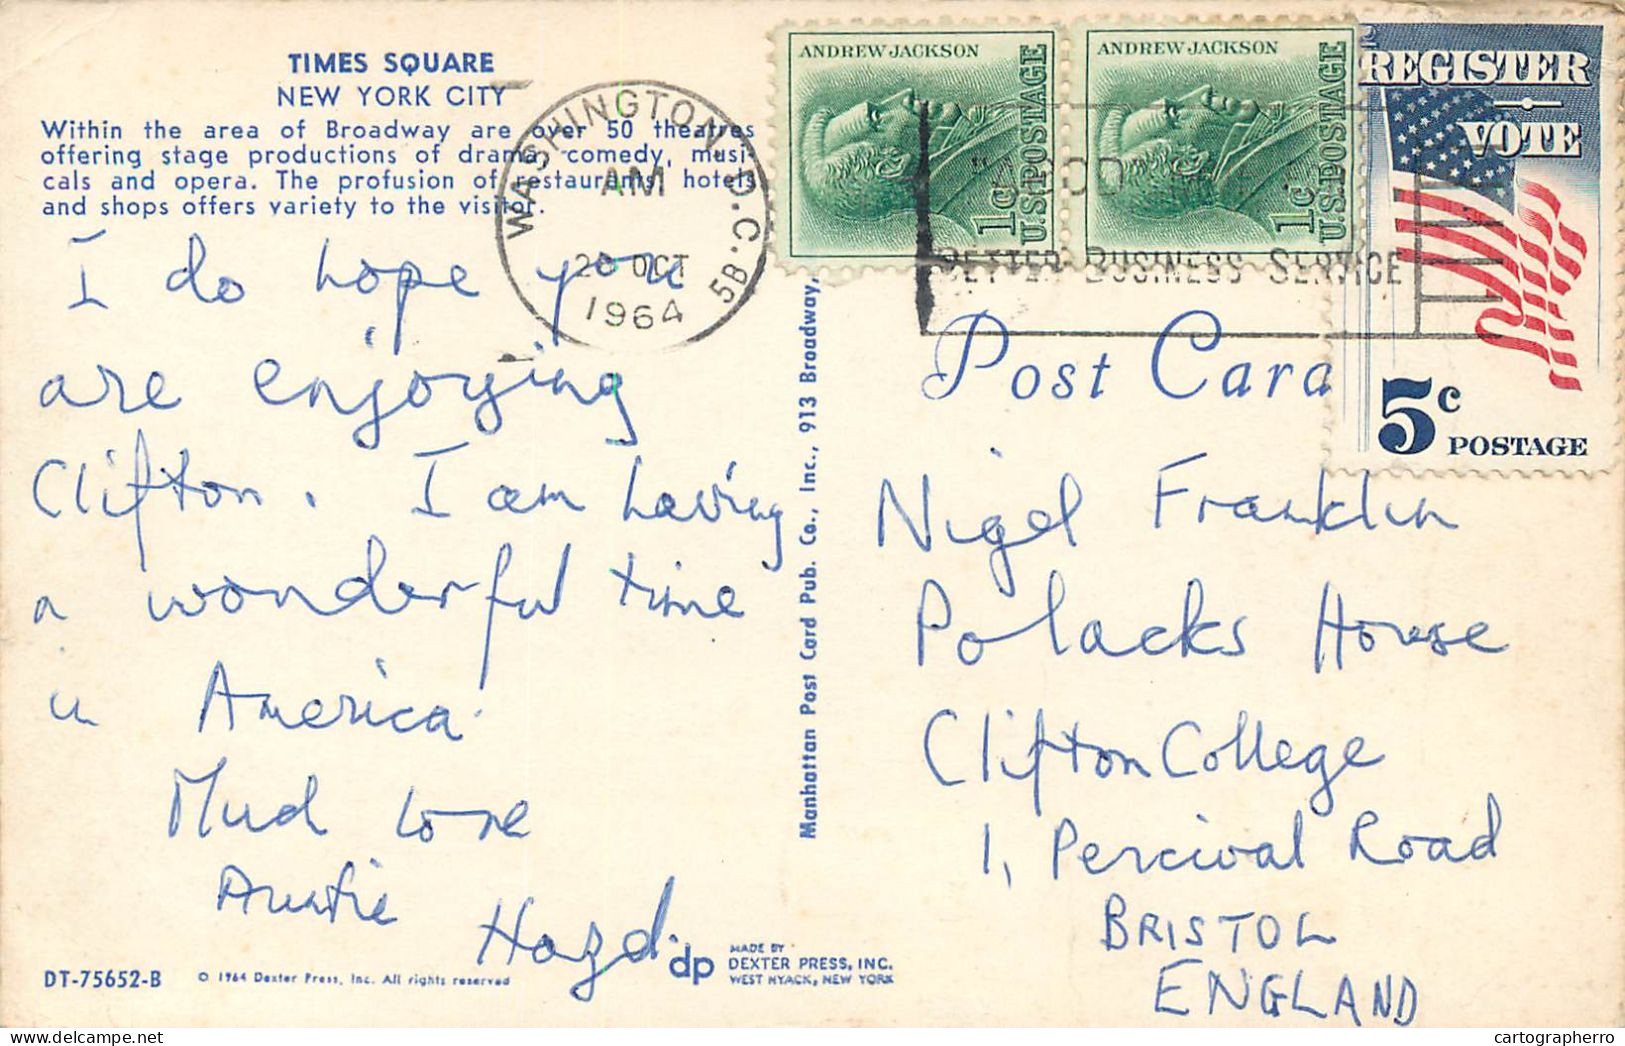 TIMES SQUARE
NEW YORK CITY
Within the area of Broadway are over 50 theatres
offering stage productions of drama, comedy, musi-
cals and opera. The profusion of restaurants, hotels
and shops offers variety to the visitor.
I do hope you
are enjoying
Clifton. I am having
a wonderful time
in America.
Much love
Auntie Hazel.
DT-75652-B
© 1964 Dexter Press, Inc. All rights reserved
dp
MADE BY
DEXTER PRESS, INC.
WEST NYACK, NEW YORK
Manhattan Post Card Pub. Co., Inc., 913 Broadway,
WASHINGTON, D.C. 5B
AM
OCT
1964
BETTER BUSINESS SERVICE
ANDREW JACKSON
1c U.S. POSTAGE
ANDREW JACKSON
1c U.S. POSTAGE
REGISTER
VOTE
5c POSTAGE
Post Card
Nigel Franklin
Polacks House
Clifton College
1, Percival Road
BRISTOL
ENGLAND
cartographerro